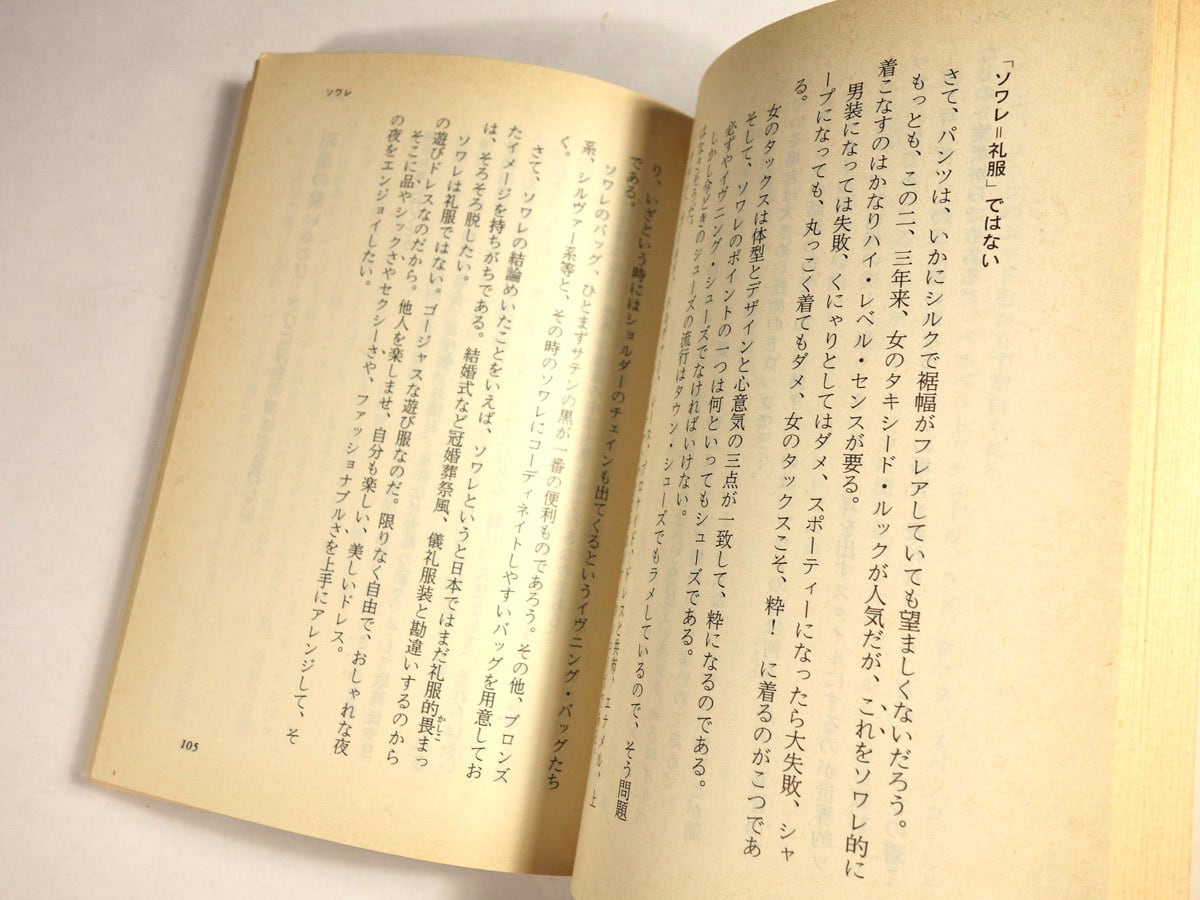 「ソワレ=礼服」ではない
さて、パンツは、いかにシルクで裾幅がフレアしていても望ましくないだろう。
もっとも、この二、三年来、女のタキシード・ルックが人気だが、これをソワレ的に
着こなすのはかなりハイ・レベル・センスが要る。
男装になっては失敗、くにゃりとしてはダメ、スポーティーになったら大失敗、シャ
ープになっても、丸っこく着てもダメ、女のタックスこそ、粋!に着るのがこつであ
る。
女のタックスは体型とデザインと心意気の三点が一致して、粋になるのである。
そして、ソワレのポイントの一つは何といってもシューズである。
必ずやイヴニング・シューズでなければいけない。
しかし今どきのシューズの流行はタウン・シューズでもラメしているので、そう問題
ソワレ
り、いざという時にはショルダーのチェインも出てくるというイヴニング・バッグたち
である。
ソワレのバッグ、ひとまずサテンの黒が一番の便利ものであろう。その他、ブロンズ
系、シルヴァー系等と、その時のソワレにコーディネイトしやすいバッグを用意してお
く。
さて、ソワレの結論めいたことをいえば、ソワレというと日本ではまだ礼服的畏まっ
かしこ
たイメージを持ちがちである。結婚式など冠婚葬祭風、儀礼服装と勘違いするのから
は、そろそろ脱したい。
ソワレは礼服ではない。ゴージャスな遊び服なのだ。限りなく自由で、おしゃれな夜
の遊びドレスなのだから。他人を楽しませ、自分も楽しい、美しいドレス。
そこに品やシックさやセクシーさや、ファッショナブルさを上手にアレンジして、そ
の夜をエンジョイしたい。
105